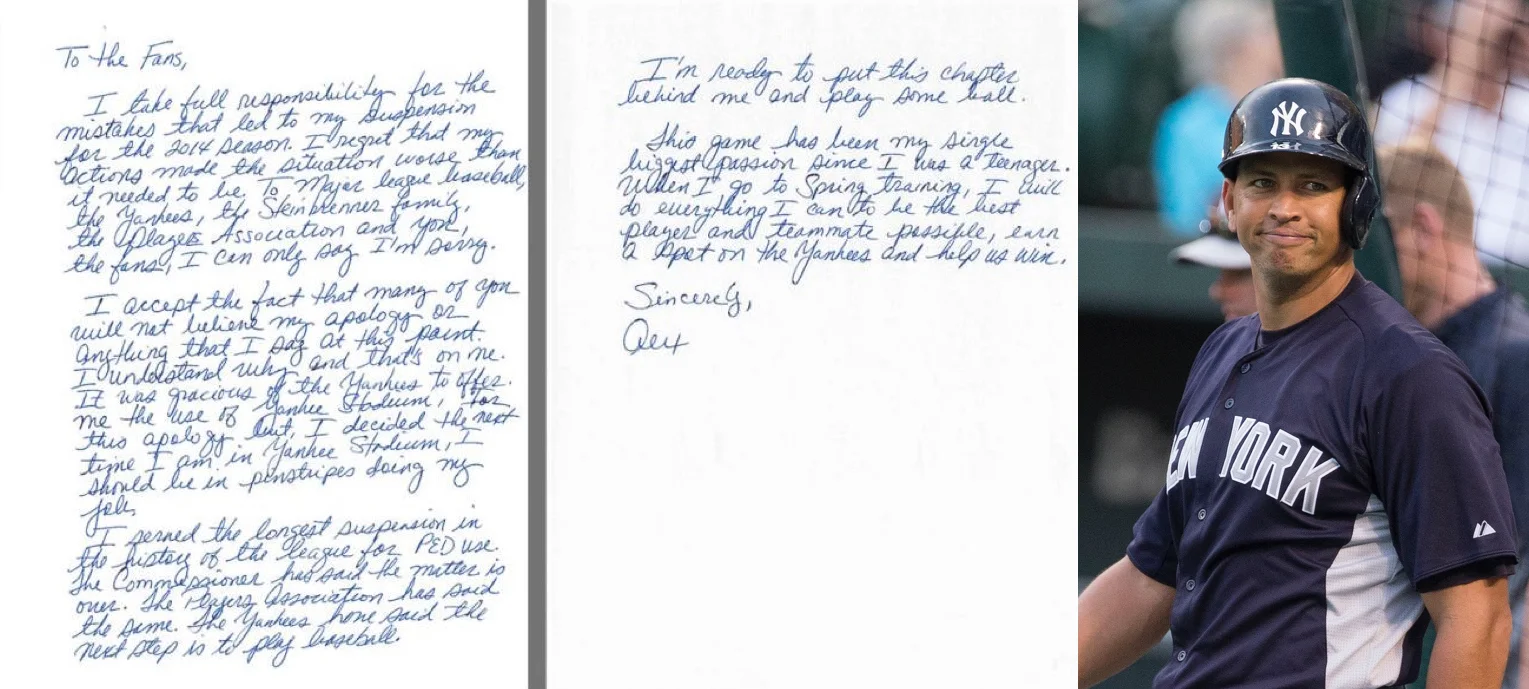 To the Fans,
I take full responsibility for the
mistakes that led to my suspension
for the 2014 season. I regret that my
actions made the situation worse than
it needed to be. To Major League Baseball,
the Yankees, the Steinbrenner family,
the Players Association and you,
the fans, I can only say I'm sorry.
I accept the fact that many of you
will not believe my apology or
anything that I say at this point.
I understand why and that's on me.
It was gracious of the Yankees to offer
me the use of Yankee Stadium, for
this apology but, I decided the next
time I am in Yankee Stadium, I
should be in pinstripes doing my
job.
I served the longest suspension in
the history of the league for PED use.
The Commissioner has said the matter is
over. The Players Association has said
the same. The Yankees have said the
next step is to play baseball.
I'm ready to put this chapter
behind me and play some ball.
This game has been my single
biggest passion since I was a teenager.
When I go to Spring Training, I will
do everything I can to be the best
player and teammate possible, earn
a spot on the Yankees and help us win.
Sincerely,
Alex
NY
EW YORK